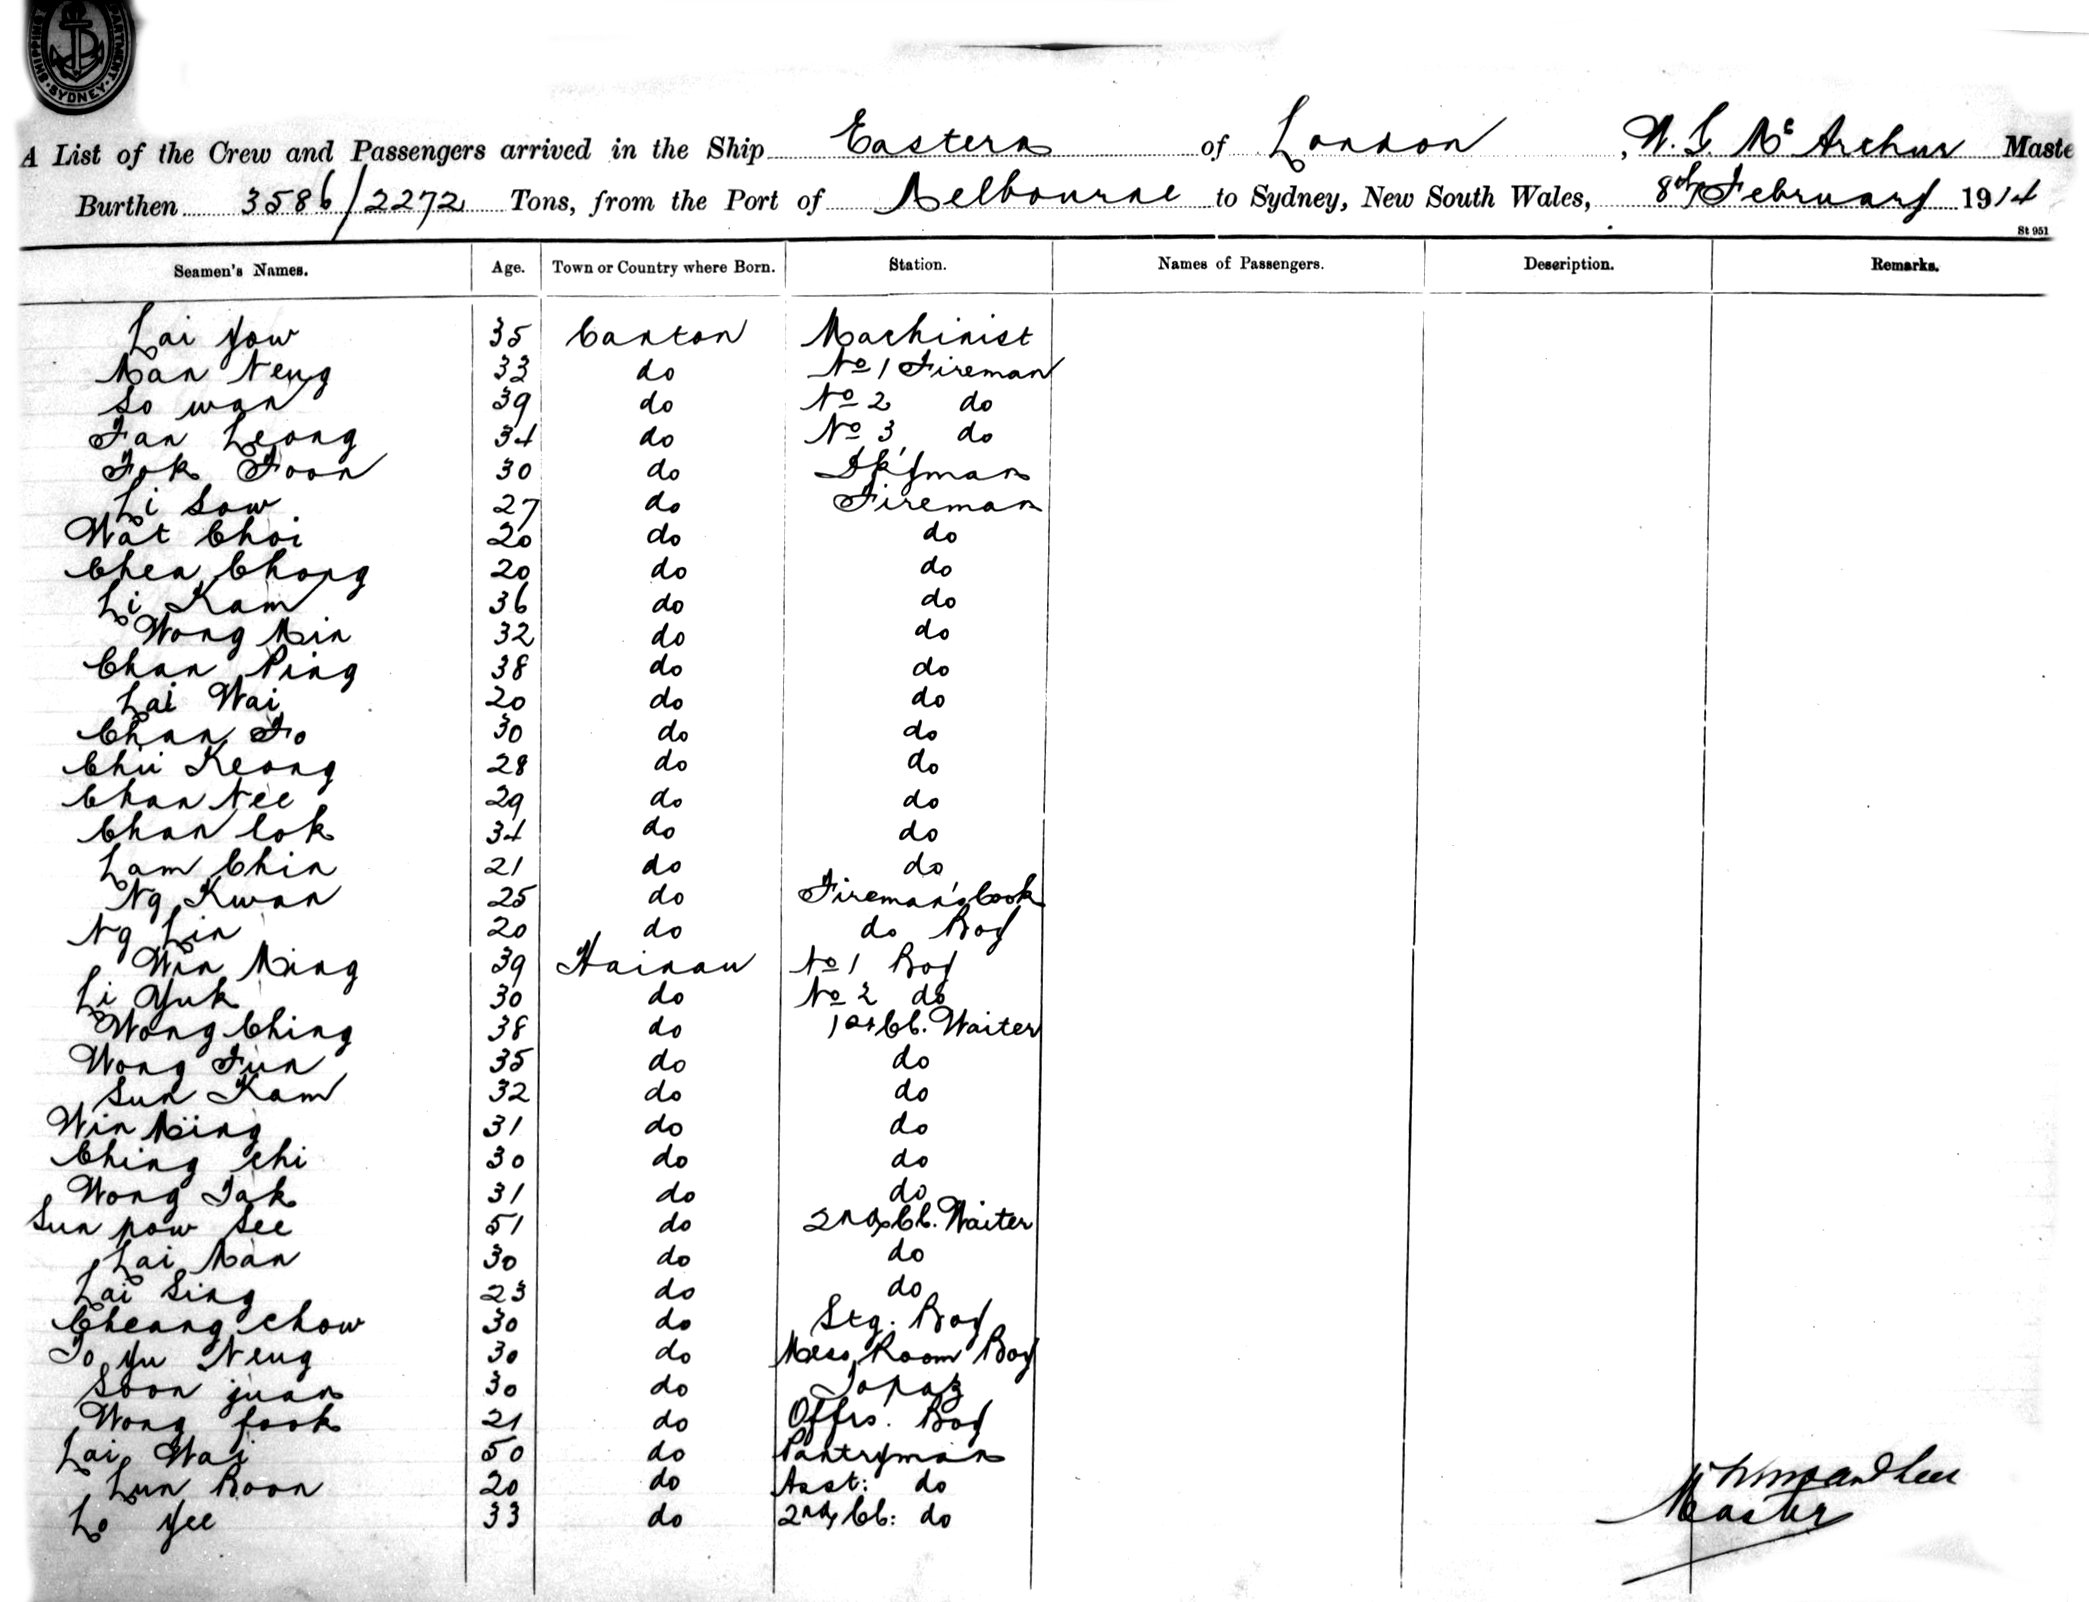 SHIPPING DEPARTMENT SYDNEY
A List of the Crew and Passengers arrived in the Ship Eastern of London, W. G. McArthur Maste
Burthen 3586/2272 Tons, from the Port of Melbourne to Sydney, New South Wales, 8th February 1914
St 951
Seamen's Names. Age. Town or Country where Born. Station. Names of Passengers. Description. Remarks.
Lai Yow 35 Canton Machinist
Man Neug 33 do No 1 Fireman
So wan 39 do No 2 do
Fan Leong 34 do No 3 do
Fok Foon 30 do Skyman
Li Sow 27 do Fireman
Wat Choi 20 do do
Chen Chong 20 do do
Li Kam 36 do do
Wong Min 32 do do
Chan Ping 38 do do
Lai Wai 20 do do
Chan Fo 30 do do
Chii Keong 28 do do
Chan Nee 29 do do
Chan Cok 34 do do
Lam Chin 21 do do
Ng Kwan 25 do Fireman's Cook
Ng Lin 20 do do Boy
Win Ming 39 Hainau No 1 Boy
Li Yuk 30 do No 2 do
Wong Ching 38 do 1st Cl. Waiter
Wong Fun 35 do do
Sun Kam 32 do do
Win Ming 31 do do
Ching Chi 30 do do
Wong Tak 31 do do
Sun pow See 51 do 2nd Cl. Waiter
Lai Man 30 do do
Lai Sing 23 do do
Cheang Chow 30 do Stg. Boy
To Yu Neug 30 do Mess Room Boy
Soon juan 30 do Topaz
Wong fook 21 do Offrs. Boy
Lai Wai 50 do Pantryman
Lun Boon 20 do Asst: do
Lo Yee 33 do 2nd Cl: do
Master